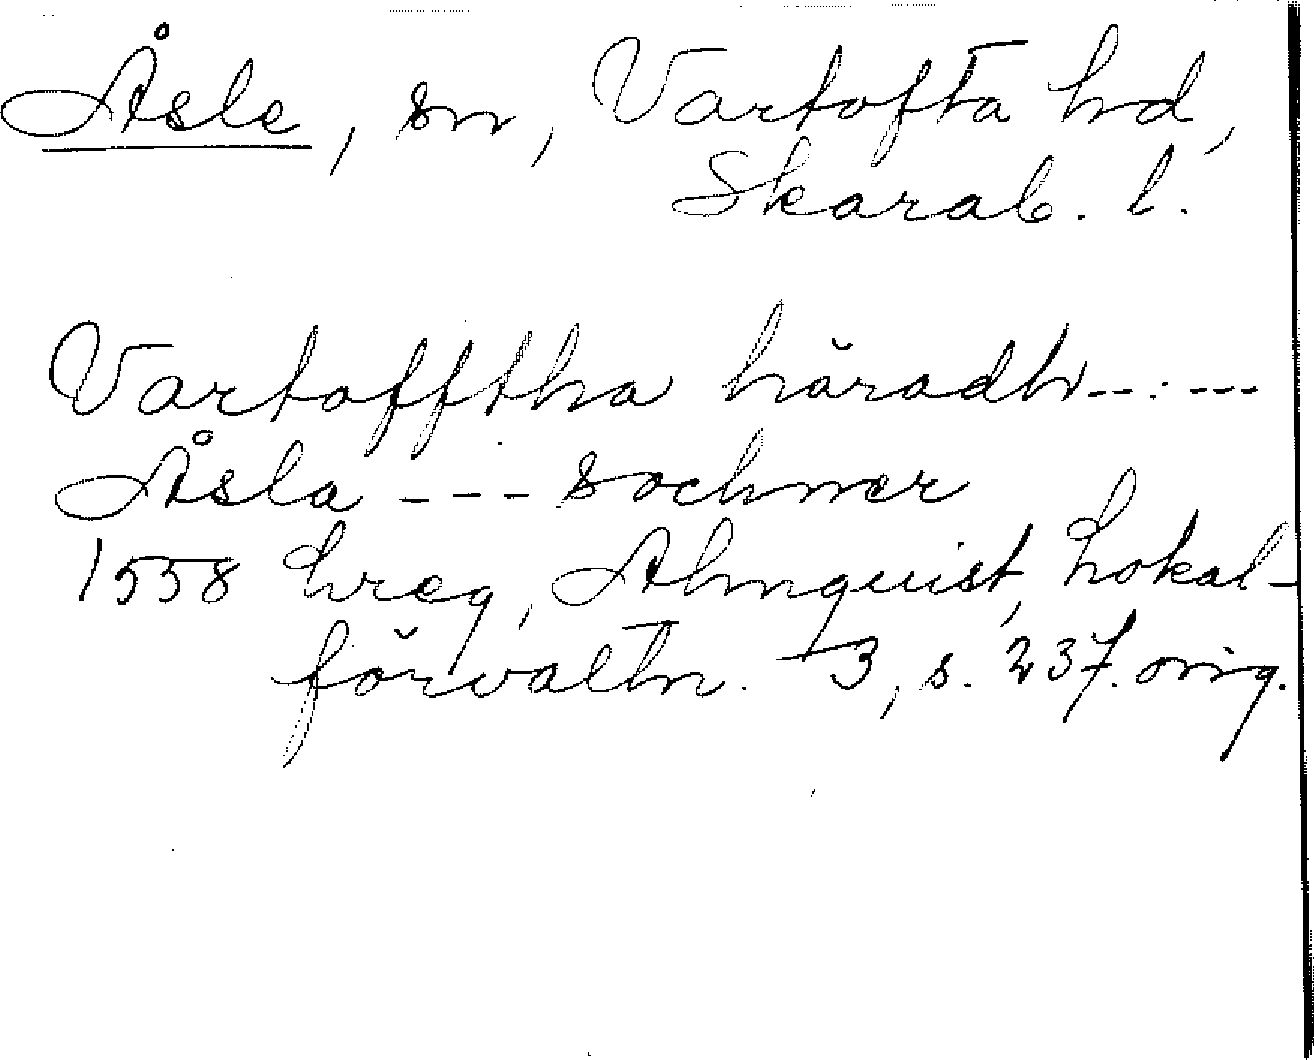 Åsle, sn, Vartofta hd,
Skarab. l.
Vartofftha häradh -- : ---
Åsla --- sochner
1558 hreg, Almquist, Lokal-
förvaltn. 3, s. 237. orig.